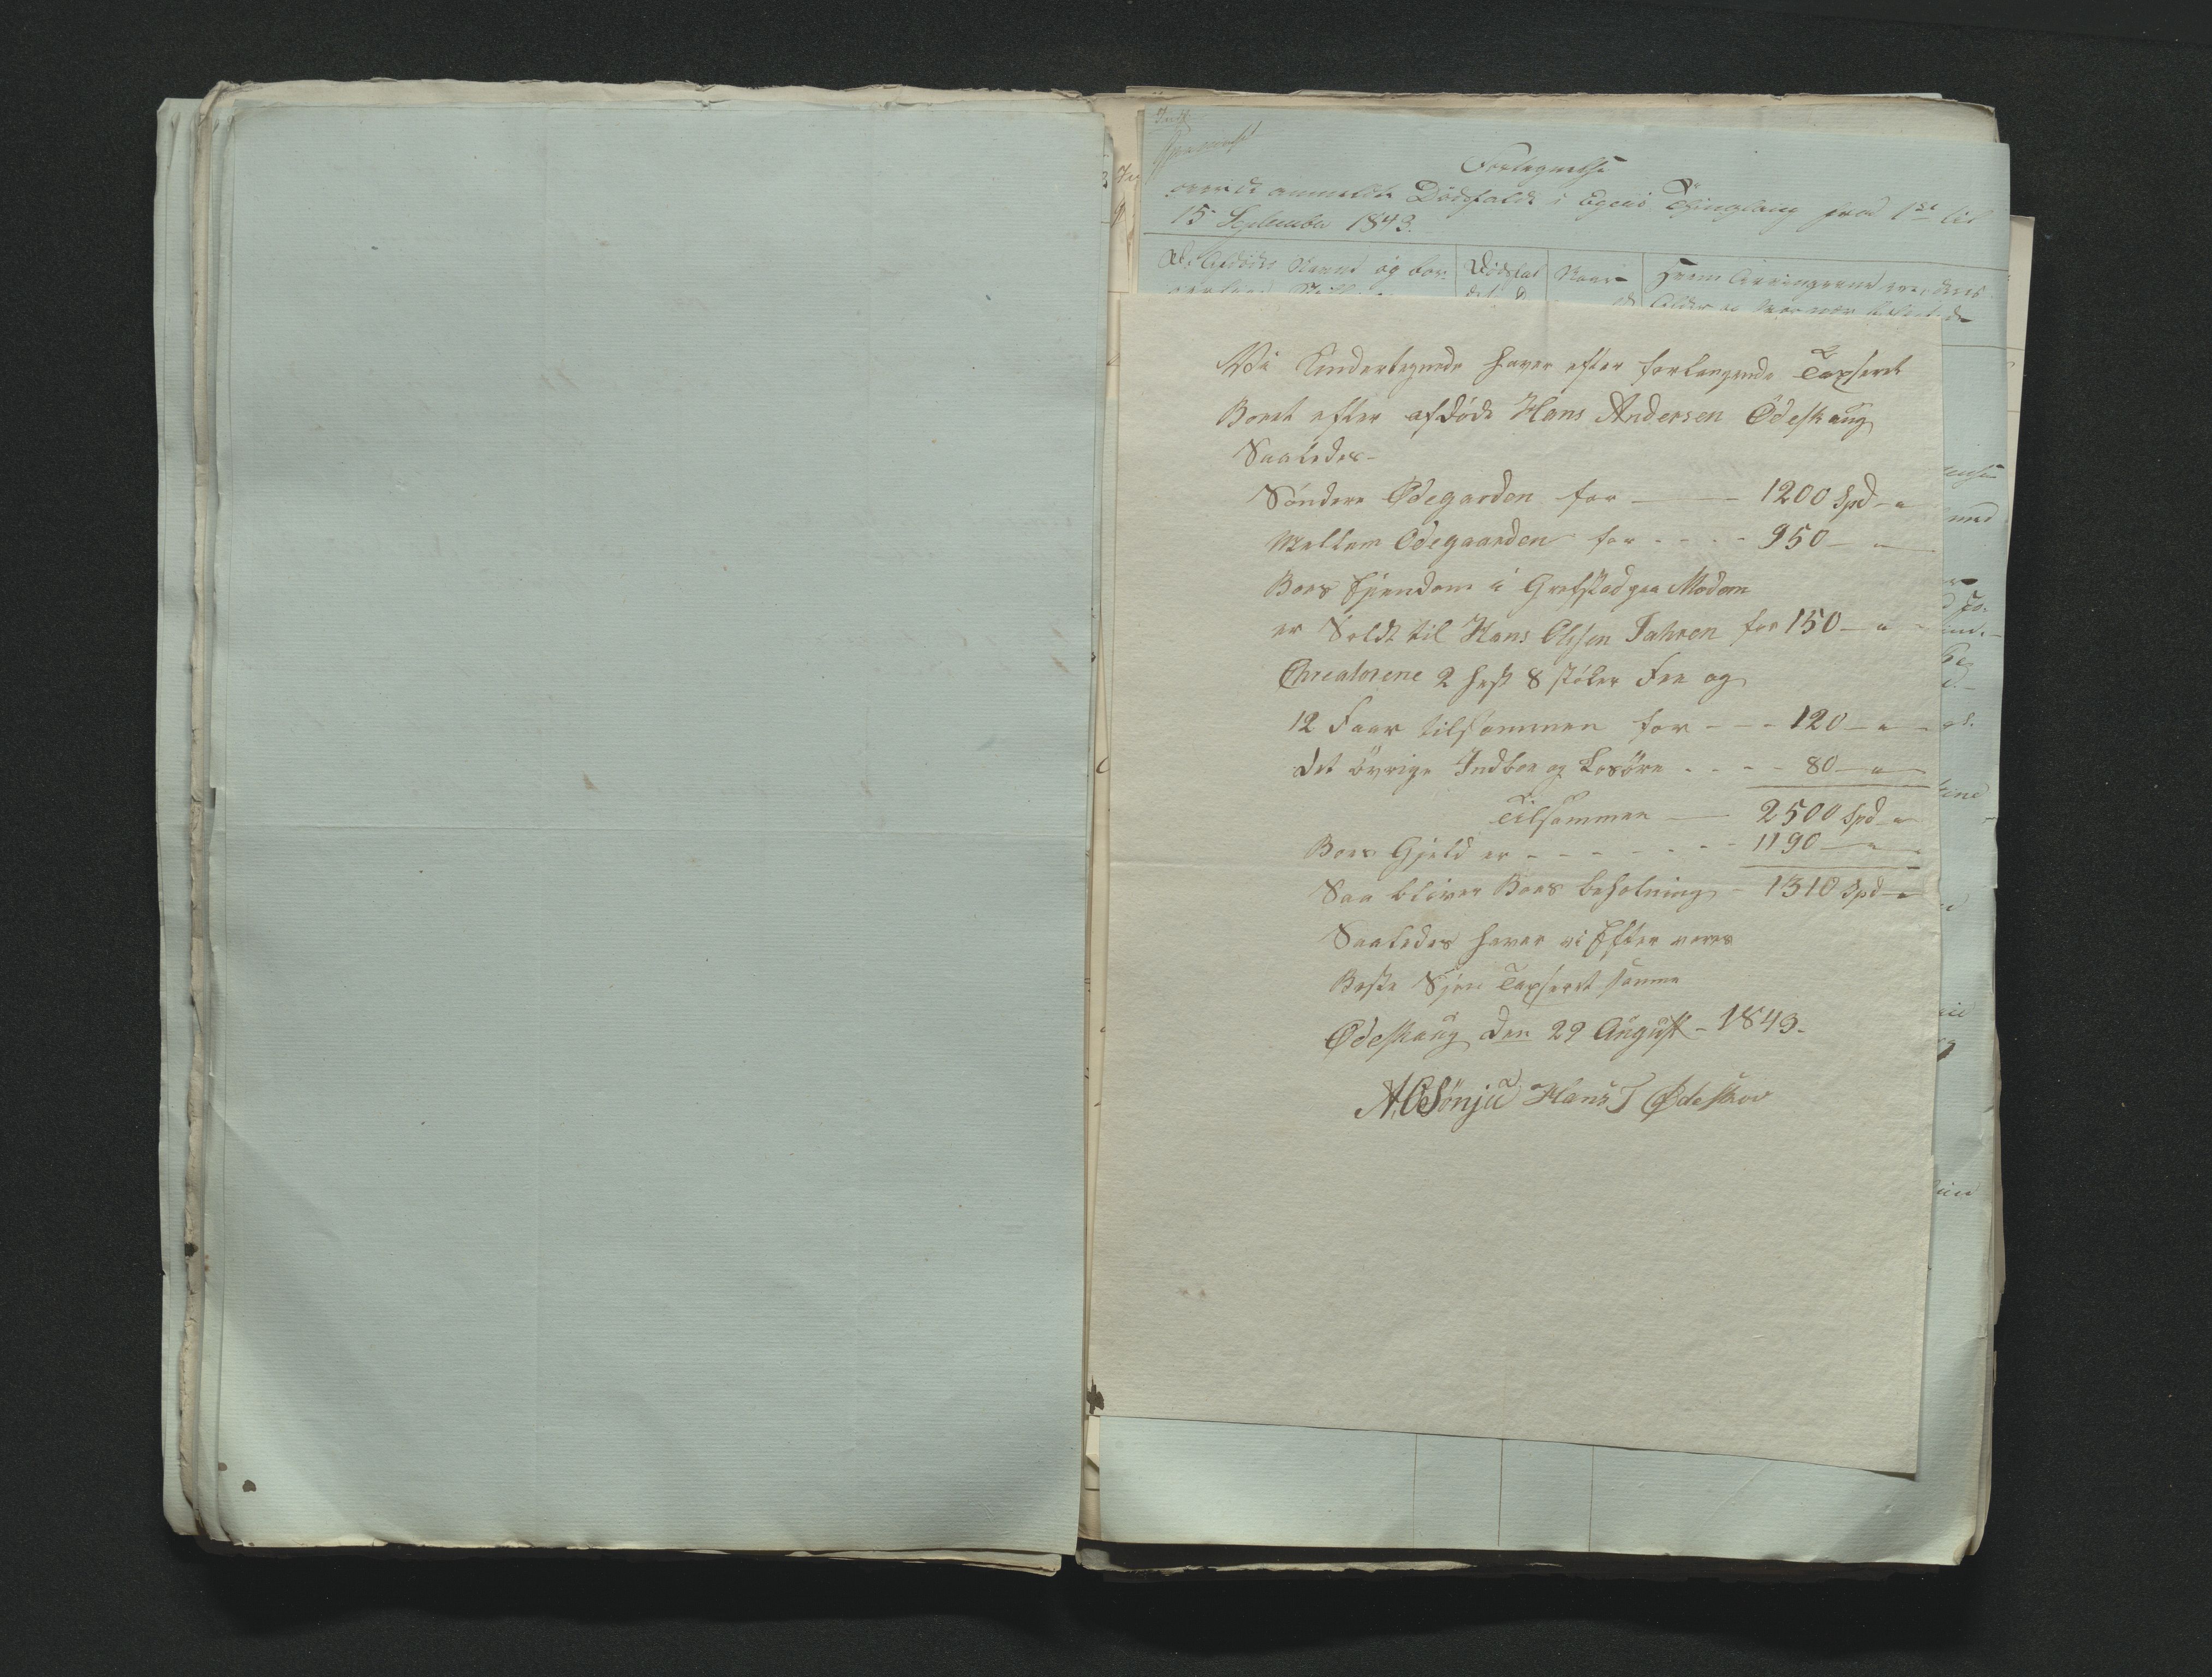 Fortegnelse
over de anmeldte Dødsfald i Egers Thinglaug fra 1ste til
15 September 1843.
Den Afdødes Navn og bor-
Dødsfal
Naar
Hvem Arvingerne ere, deres
Vi Undertegnede haver efter forlangende Taxseret
Boet efter afdøde Hans Andersen Ödeskaug
Saaledes-
Söndere Ödegarden for - 1200 Spd - "
Mellem Ödegaarden for - - - - 950 - "
Boes Ejendom i Grefstad paa Modom
er Soldt til Hans Olsen Jahren for 150 - " -
Chreatorene 2 Hest 8 støker Fee og
12 Faar tilsammen for - - - 120 - " -
det övrige Indboe og Losöre - - - - 80 - "
Tilsammen - 2500 Spd - "
Boes Gjeld er - - - - - - - 1190 - " -
Saa bliver Boes beholning - 1310 Spd - "
Saaledes haver vi Efter vores
Beste Sjön Taxseret samme
Ödeskaug den 29 August - 1843.
A. O Sönju Hans J Ödeskov